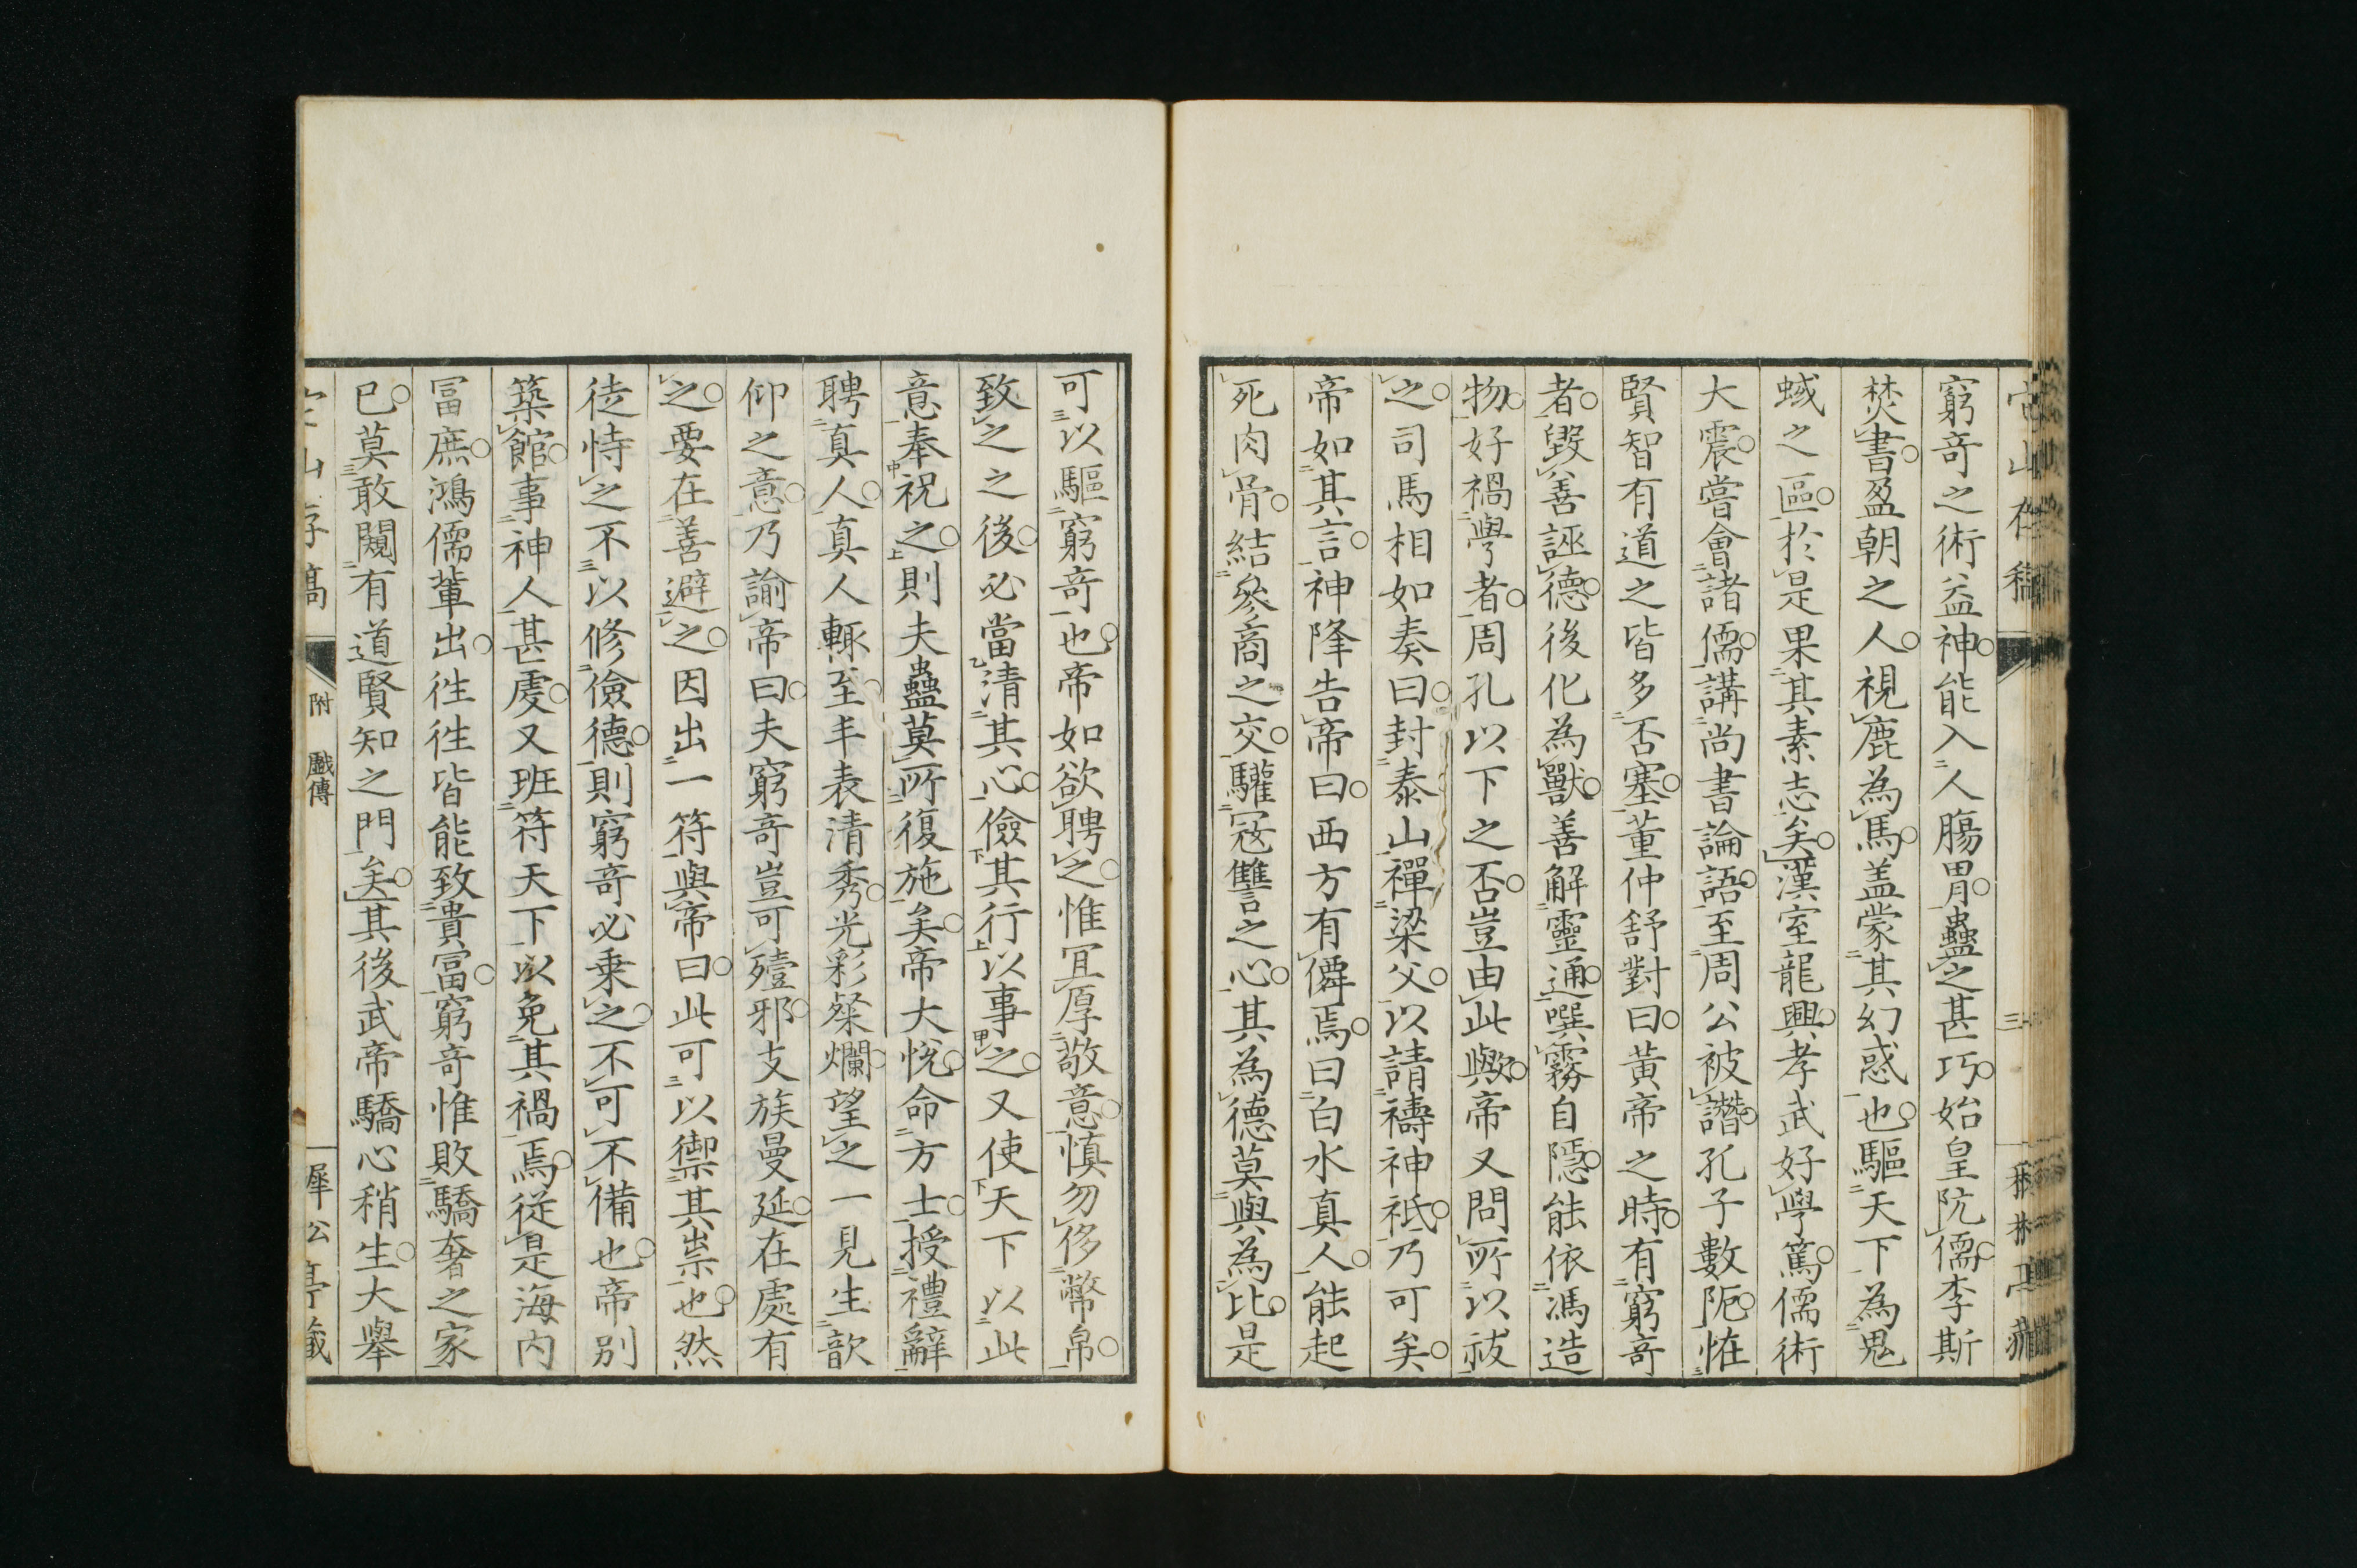 窮奇之術益神能入人腸胃蠱之甚巧始皇阬儒李斯
焚書盈朝之人視鹿為馬盖蒙其幻惑也驅天下為鬼
蜮之區於是果其素志矣漢室龍興孝武好學篤儒術
大震嘗會諸儒講尚書論語至周公被譖孔子數阨恠
賢智有道之皆多否塞董仲舒對曰黃帝之時有窮奇
者毀善誣德後化為獸善解靈通噀霧自隱能依馮造
物好禍學者周孔以下之否豈由此歟帝又問所以祓
之司馬相如奏曰封泰山禪梁父以請禱神祇乃可矣
帝如其言神降告帝曰西方有僊焉曰白水真人能起
死肉骨結參商之交驩寇讐之心其為德莫與為比是
可以驅窮奇也帝如欲聘之惟宜厚敬意慎勿侈幣帛
致之之後必當清其心儉其行以事之又使天下以此
意奉祝之則夫蠱莫所復施矣帝大悅命方士授禮辭
聘真人真人輙至丰表清秀光彩粲爛望之一見生歆
仰之意乃諭帝曰夫窮奇豈可殪邪支族曼延在處有
之要在善避之因出一符與帝曰此可以禦其祟也然
徒恃之不以修儉德則窮奇必乗之不可不備也帝別
築館事神人甚虔又班符天下以免其禍焉從是海内
冨庶鴻儒輩出往往皆能致貴富窮奇惟敗驕奢之家
已莫敢闚有道賢知之門矣其後武帝驕心稍生大舉
附 戲傳